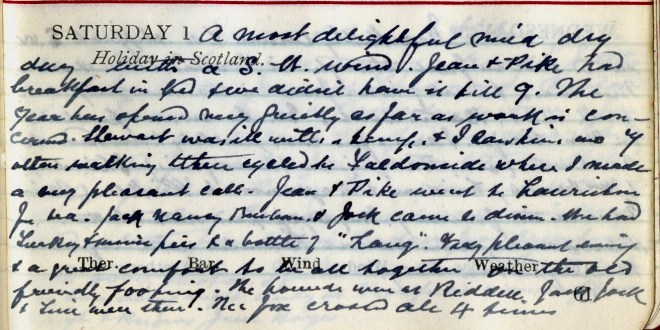 SATURDAY 1 A most delightful mild dry
Holiday in Scotland.
day with a S. W. wind. Jean & Pike had
breakfast in bed & we didn't have it till 9. The
year has opened very quietly as far as work is con-
cerned. Stewart was ill with a temp. & I saw him
walking & then cycled to Faldonside where I made
a very pleasant call. Jean & Pike went to
for tea. Jack Nancy & Jock came to dinner. We had
Turkey & mince pies & a bottle of "Haug". A very pleasant evening
Ther. Bar. Wind Weather
& a great comfort to be all together the old
friendly footing. The hounds were at Riddell. Jock
& were there. The fox crossed Ale 4 times